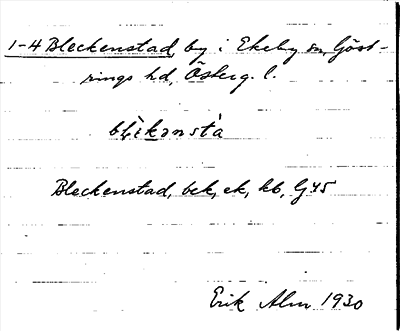 1-4 Bleckenstad, by i Ekeby sn, Göst-
rings hd, Österg. l.
Bleckenstad, bek, ek, kb, Gj 45
Erik Alm 1930